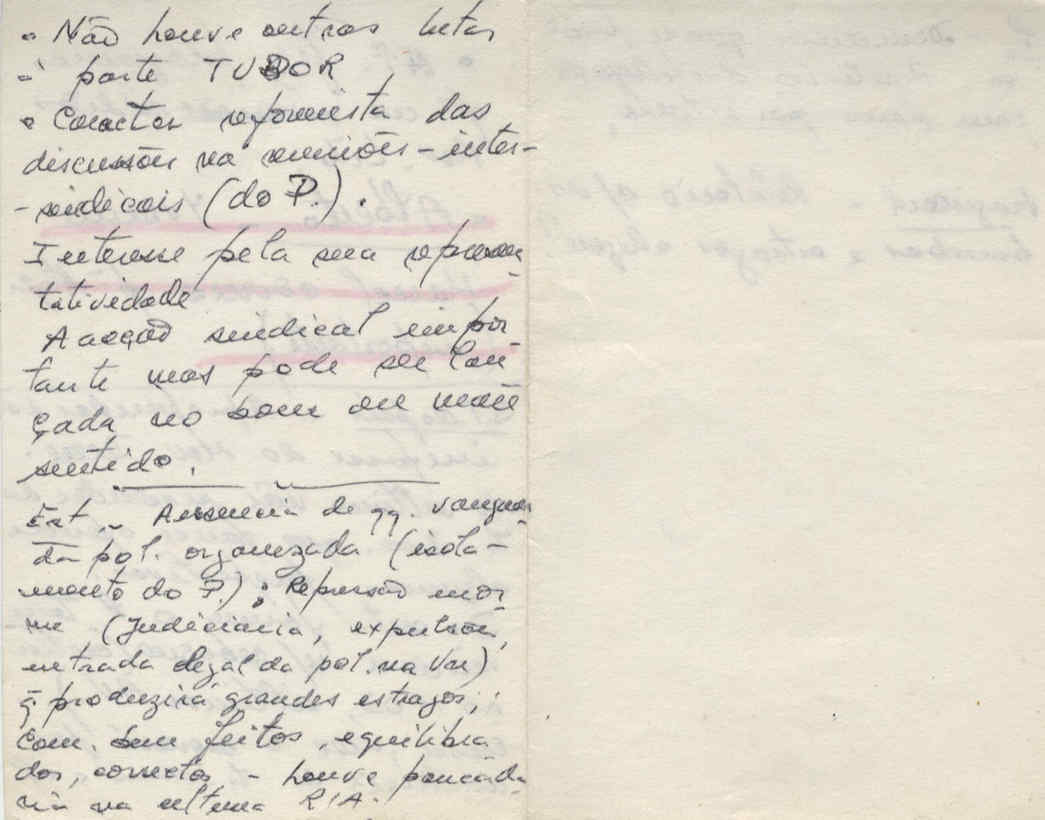 • Não houve outras lutas
à parte TUDOR
• Caracter reformista das
discussões na reuniões - inter-
- sindicais (do P.).
Interesse pela sua represen
tatividade
A acção sindical impor
tante mas pode ser lan
çada no bom ou mau
sentido.
Est - Ausencia de qq. vanguar
da pol. organizada (isola-
mento do P.); Repressão enor
me (Judiciária, expulsões,
entrada ilegal da pol. na Un)
q̄ produzirá grandes estragos;
Com. bem feitos, equilibra
dos, correctos - houve pancada
ria na ultima RIA.